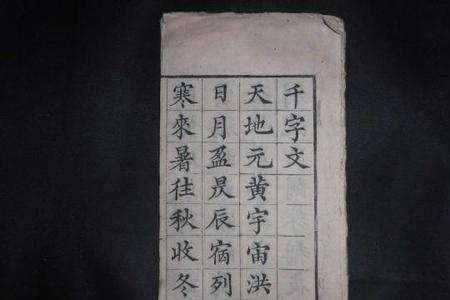 千字文
天地元黄宇宙洪
日月盈昃辰宿列
寒來暑往秋收冬